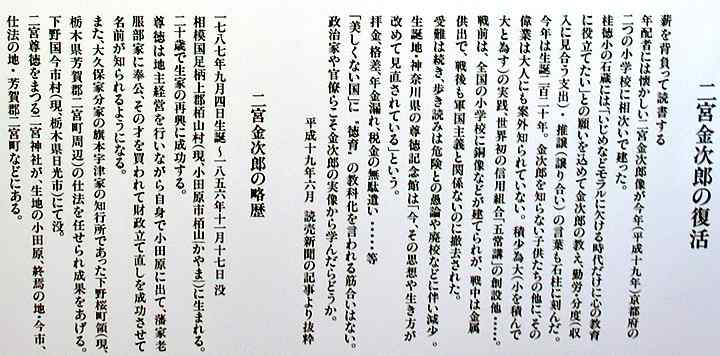 二宮金次郎の復活
薪を背負って読書する
年配者には懐かしい二宮金次郎像が今年(平成十九年)京都府の
二つの小学校に相次いで建った。
桂徳小の石蔵には、「いじめなどモラルに欠ける時代だけに心の教育
に役立てたい」との願いを込めて金次郎の教え、勤労・分度(収
入に見合う支出)・推譲(譲り合い)の言葉も石柱に刻んだ。
今年は生誕二百二十年。金次郎を知らない子供たちの他に、その
偉業は大人にも案外知られていない。積少為大(小を積んで
大と為す)の実践、世界初の信用組合「五常講」の創設他……。
戦前は、全国の小学校に銅像などが建てられたが、戦中は金属
供出で、戦後も軍国主義と関係ないのに撤去された。
受難は続き、歩き読みは危険との愚論や廃校などに伴い減少。
生誕地・神奈川県の尊徳記念館は「今、その思想や生き方が
改めて見直されている」という。
拝金、格差、年金漏れ、税金の無駄遣い……等
「美しくない国」に〝徳育〟の教科化を言われる筋合いはない。
政治家や官僚らこそ金次郎の実像から学んだらどうか。
平成十九年六月 読売新聞の記事より抜粋
二宮金次郎の略歴
一七八七年九月四日生誕~一八五六年十一月十七日 没
相模国足柄上郡栢山村(現、小田原市栢山「かやま」)に生まれる。
二十歳で生家の再興に成功する。
尊徳は地主経営を行いながら自身で小田原に出て、藩家老
服部家に奉公、その才を買われて財政立て直しを成功させて
名前が知られるようになる。
また、大久保家分家の旗本宇津家の知行所であった下野桜町領(現、
栃木県芳賀郡二宮町周辺)の仕法を任せられ成果をあげる。
下野国今市村(現、栃木県日光市)にて没。
二宮尊徳をまつる二宮神社が、生地の小田原、終焉の地・今市、
仕法の地・芳賀郡二宮町などにある。